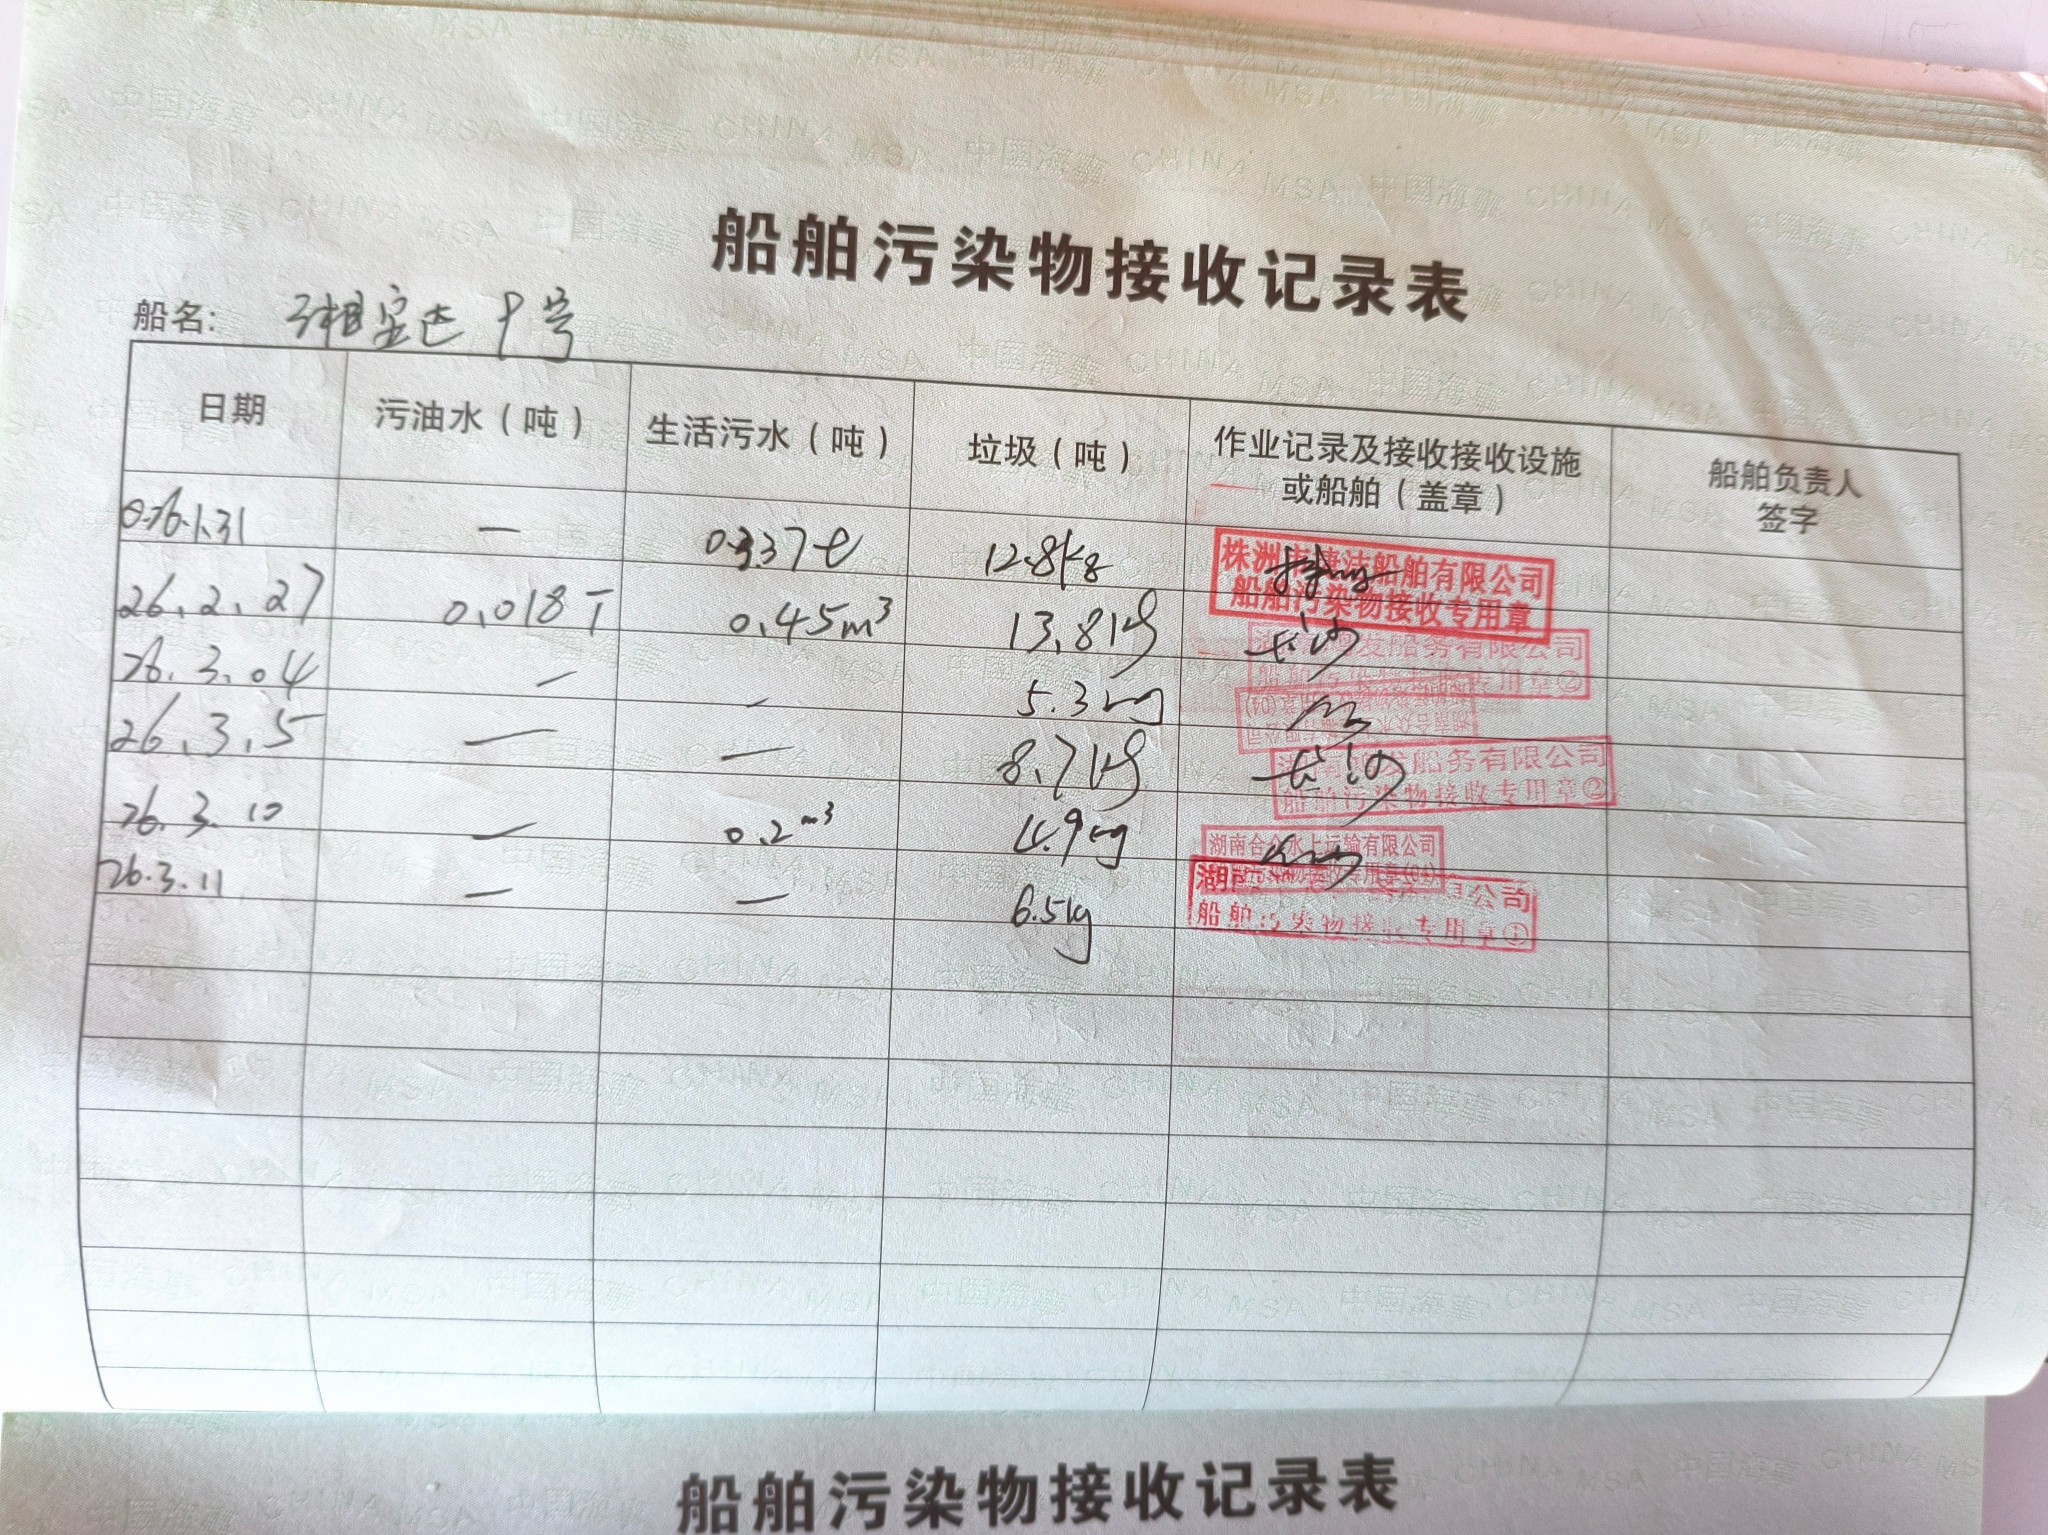 船舶污染物接收记录表
船名:
日期 污油水（吨） 生活污水（吨） 垃圾（吨） 作业记录及接收接收设施或船舶（盖章） 船舶负责人签字
26.1.31 — 0.337t 12.8kg 株洲市 洁船舶有限公司
船舶污染物接收专用章
26.2.27 0.018T 0.45m³ 13.8kg 长沙 发船务有限公司
船舶污染物接收专用章②
26.3.04 — — 5.3kg
26.3.5 — — 8.7kg 长沙 发船务有限公司
船舶污染物接收专用章②
26.3.10 — 0.2m³ 4.9kg 湖南合众水上运输有限公司
26.3.11 — — 6.5kg 湖 公司
船舶污染物接收专用章①
中国海事 CHINA MSA
船舶污染物接收记录表